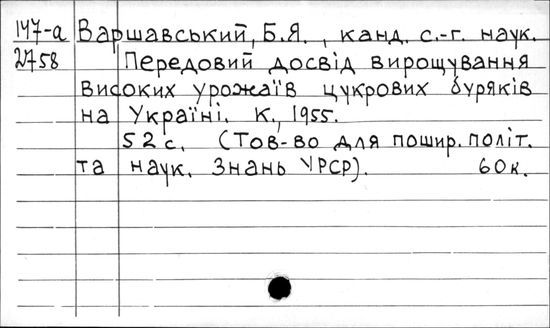 147-а Варшавський, Б.Я., канд. с.-г. наук.
2758 Передовий досвід вирощування
високих урожаїв цукрових буряків
на Україні. К., 1955.
52 с. (Тов-во для пошир. політ.
та наук. Знань УРСР). 60к.